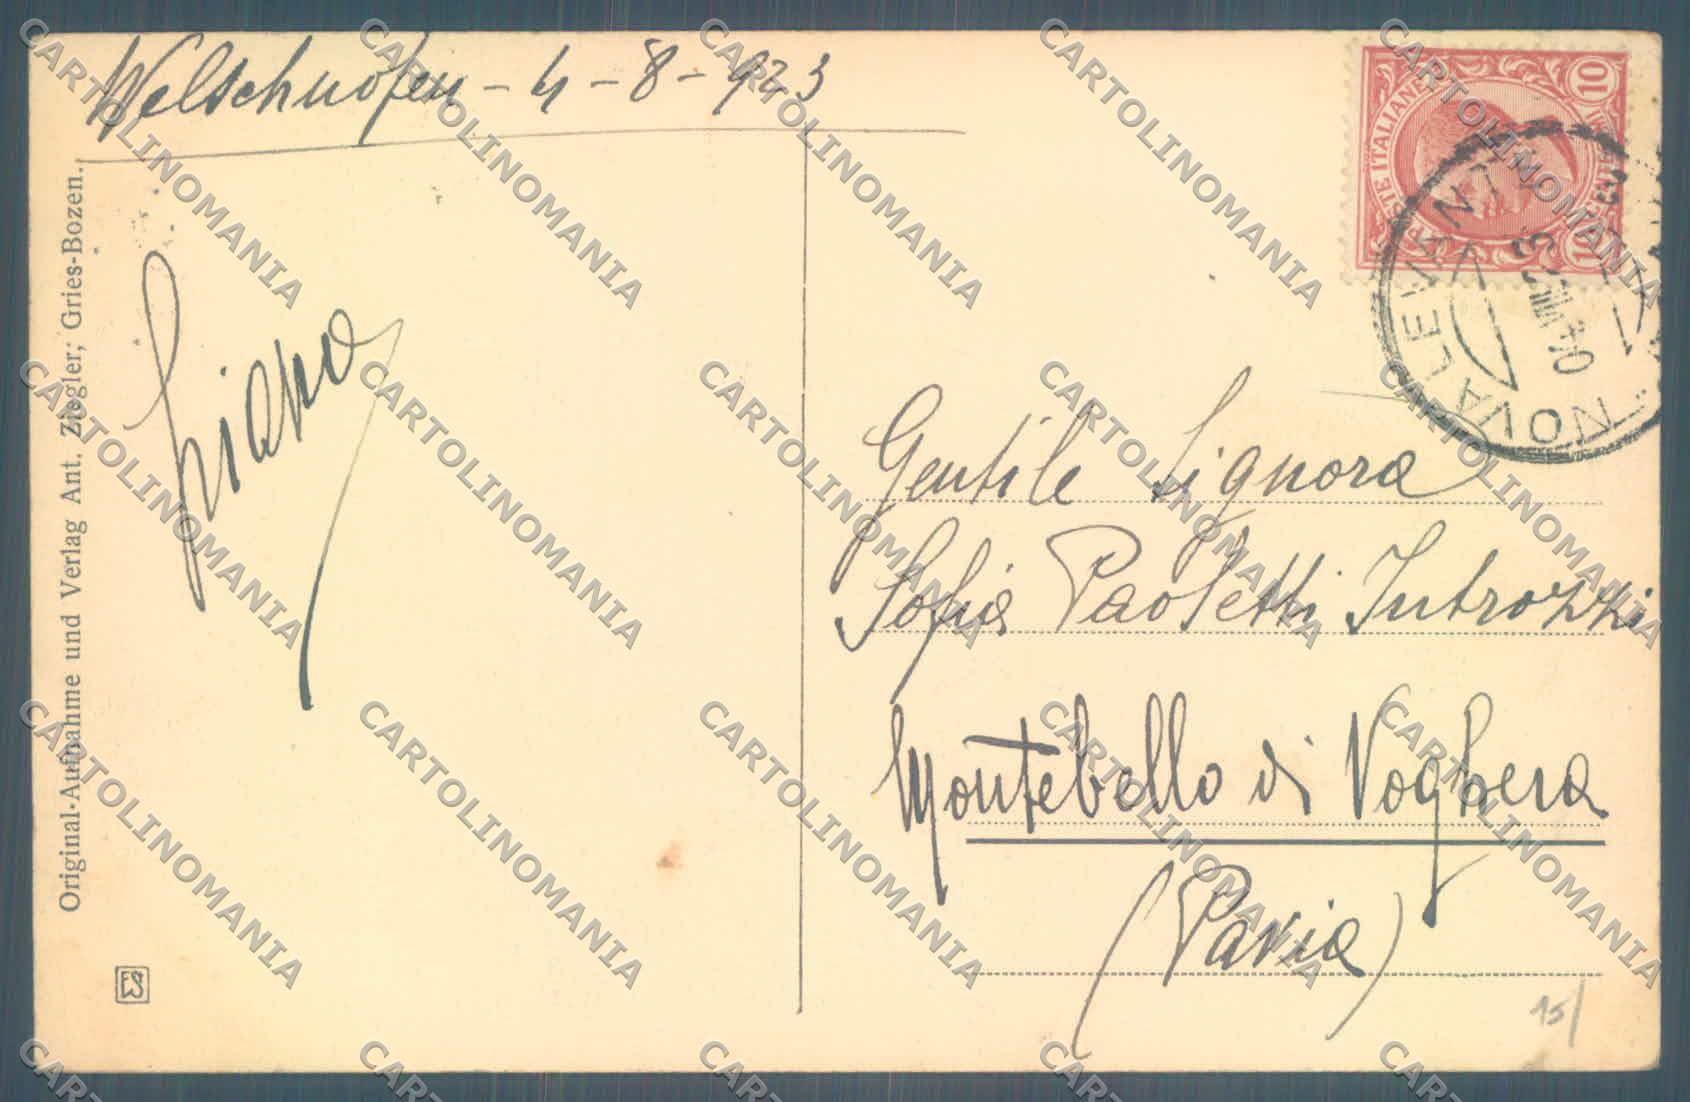 Welschnofen - 4 - 8 - 923
Original-Aufnahme und Verlag Ant. Ziegler; Gries-Bozen.
POSTE ITALIANE
10
10
NOVA LEVANTE
04.VIII.23
1
Gentile Signora
Sofia Paoletti Introzzi
Montebello di Voghera
(Pavia)
ES
15/
CARTOLINOMANIA